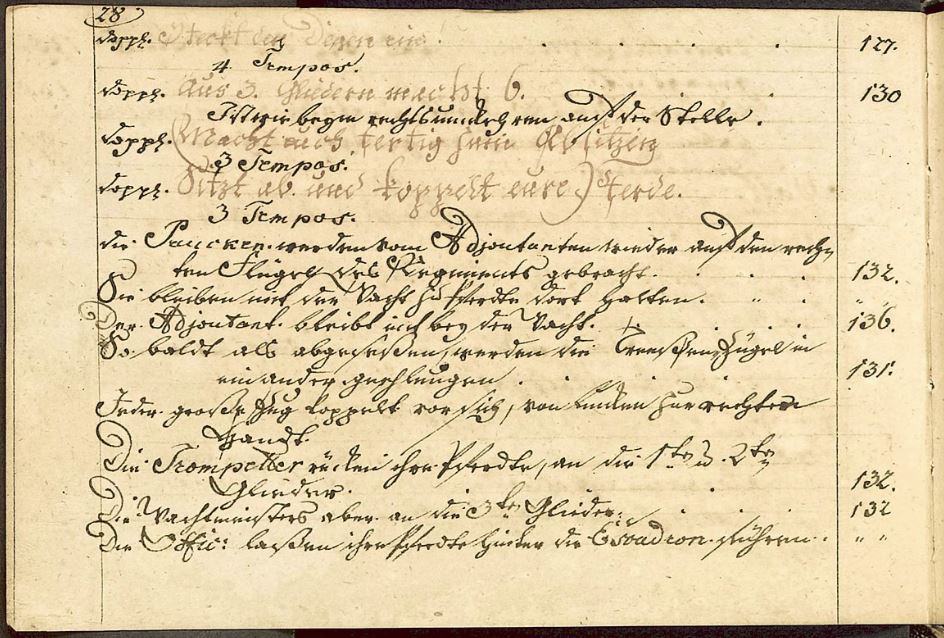 28
Dopp. Steckt den Degen ein! 127.
4 Tempos.
Dopp. Aus 3. Gliedern macht 6. 130
rechtsumkehren auf der Stelle.
Dopp. Macht euch fertig zum Absitzen
3 Tempos.
Dopp. Sitzt ab und koppelt eure Pferde.
3 Tempos.
die Paucken werden vom Adjoutanten wieder auf den rech-
ten Flügel des Regiments gebracht. 132.
Sie bleiben mit der Wacht zu Pferdte dort halten. " "
Der Adjoutant bleibt auch bey der Wacht. 136.
So baldt als abgeseßen, werden die Trenßen Zügel in
ein ander geschlungen. 131.
Jeder große Zug koppelt vor sich, von Lincken zur rechten
Handt.
Die Trompetter rücken ihre Pferdte, an die 1te u. 2te
Glieder. 132.
Die Wachtmeisters aber an die 3te Glieder. 132
Die Offic: laßen ihre Pferdte hinter die Escadron führen. " "